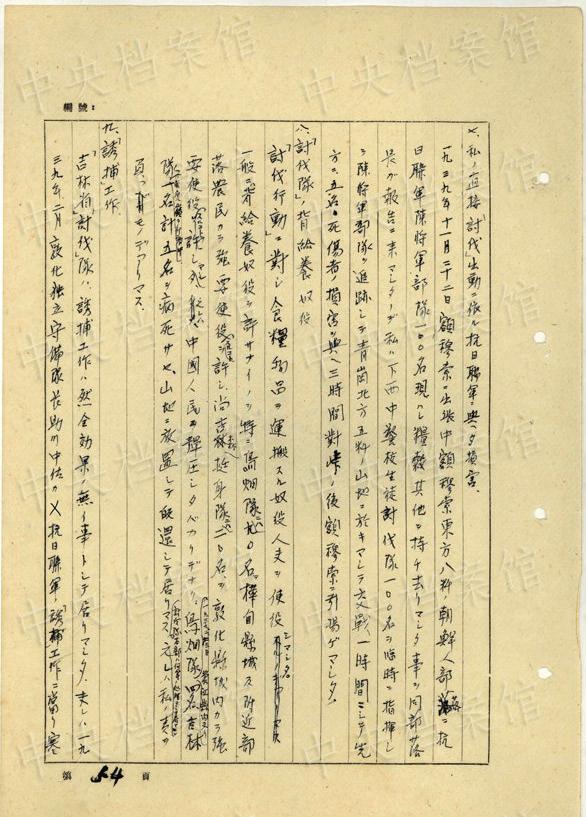 編號：
七、私ノ直接「討伐」出動ニ依ル抗日聯軍ニ與ヘタ損害、
一九三九年十一月二十二日額穆索ニ出張中額穆索東方八粁ノ朝鮮人部落ニ抗
日聯軍陳将軍部隊一〇〇名現ハレ糧穀其他ヲ持チ去リマシタ事ヲ同部落
長ガ報告ニ来マシタノデ私ハ下西中警校生徒討伐隊一〇〇名ヲ臨時ニ指揮シ
陳将軍部隊ヲ追跡シテ青崗北方五粁ノ山地ニ於キマシテ交戦一時間ニシテ先
方ニ五名ノ死傷者ノ損害ヲ與ヘ三時間対峙ノ後額穆索ニ引揚ゲマシタ、
八、「討伐隊」ノ背給養奴役
「討伐行動」ニ対シ食糧物品ヲ運搬スル奴役人夫ヲ使役シマシタ
一般ニ背給養奴役ヲ許サナイノヲ特ニ馬畑隊ニ 〇名ヲ樺甸縣城及附近部
落農民カラ強要使役ヲ許シ、尚吉林挺身隊ニ二〇名ヲ敦化縣城内カラ強
要使役ヲ許シ 中國人民ヲ彈圧シタバカリデナク、馬畑隊四名吉林
隊一名計五名ヲ病死サセ、山地ニ放置シテ取還シテ居リマス
負フベキモノデアリマス、
九、「誘捕」工作
吉林省「討伐」隊ハ「誘捕」工作ハ然全効果ノ無イ事トシテ居リマシタ、夫レハ一九
三九年二月敦化独立守備隊長 中佐ガ 抗日聯軍ノ「誘捕」工作ニ當リ寒
第 54 頁
中央档案馆
中央档案馆
中央档案馆
中央档案馆
中央档案馆
中央档案馆